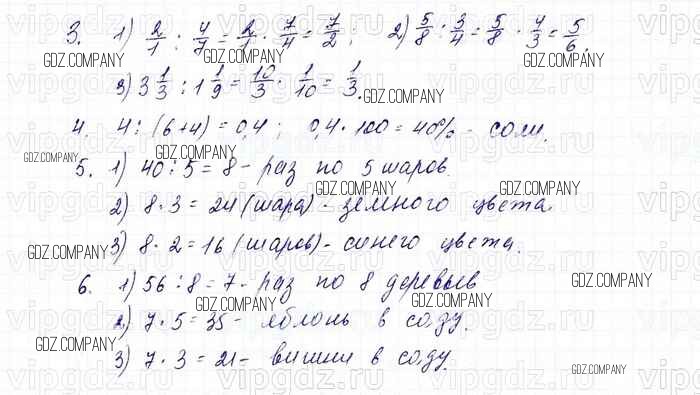 3. 1) 2/1 : 4/7 = 2/1 · 7/4 = 7/2; 2) 5/8 : 3/4 = 5/8 · 4/3 = 5/6.
3) 3 1/3 : 1 1/9 = 10/3 · 1/10 = 1/3.
4. 4 : (6+4) = 0,4; 0,4 · 100 = 40% - соли.
5. 1) 40 : 5 = 8 - раз по 5 шаров.
2) 8 · 3 = 24 (шара) - земного цвета
3) 8 · 2 = 16 (шаров) - синего цвета.
6. 1) 56 : 8 = 7 - раз по 8 деревьев
2) 7 · 5 = 35 - яблонь в саду.
3) 7 · 3 = 21 - вишни в саду.
GDZ.COMPANY
GDZ.COMPANY
GDZ.COMPANY
GDZ.COMPANY
GDZ.COMPANY
GDZ.COMPANY
GDZ.COMPANY
GDZ.COMPANY
GDZ.COMPANY
GDZ.COMPANY
GDZ.COMPANY
GDZ.COMPANY
GDZ.COMPANY